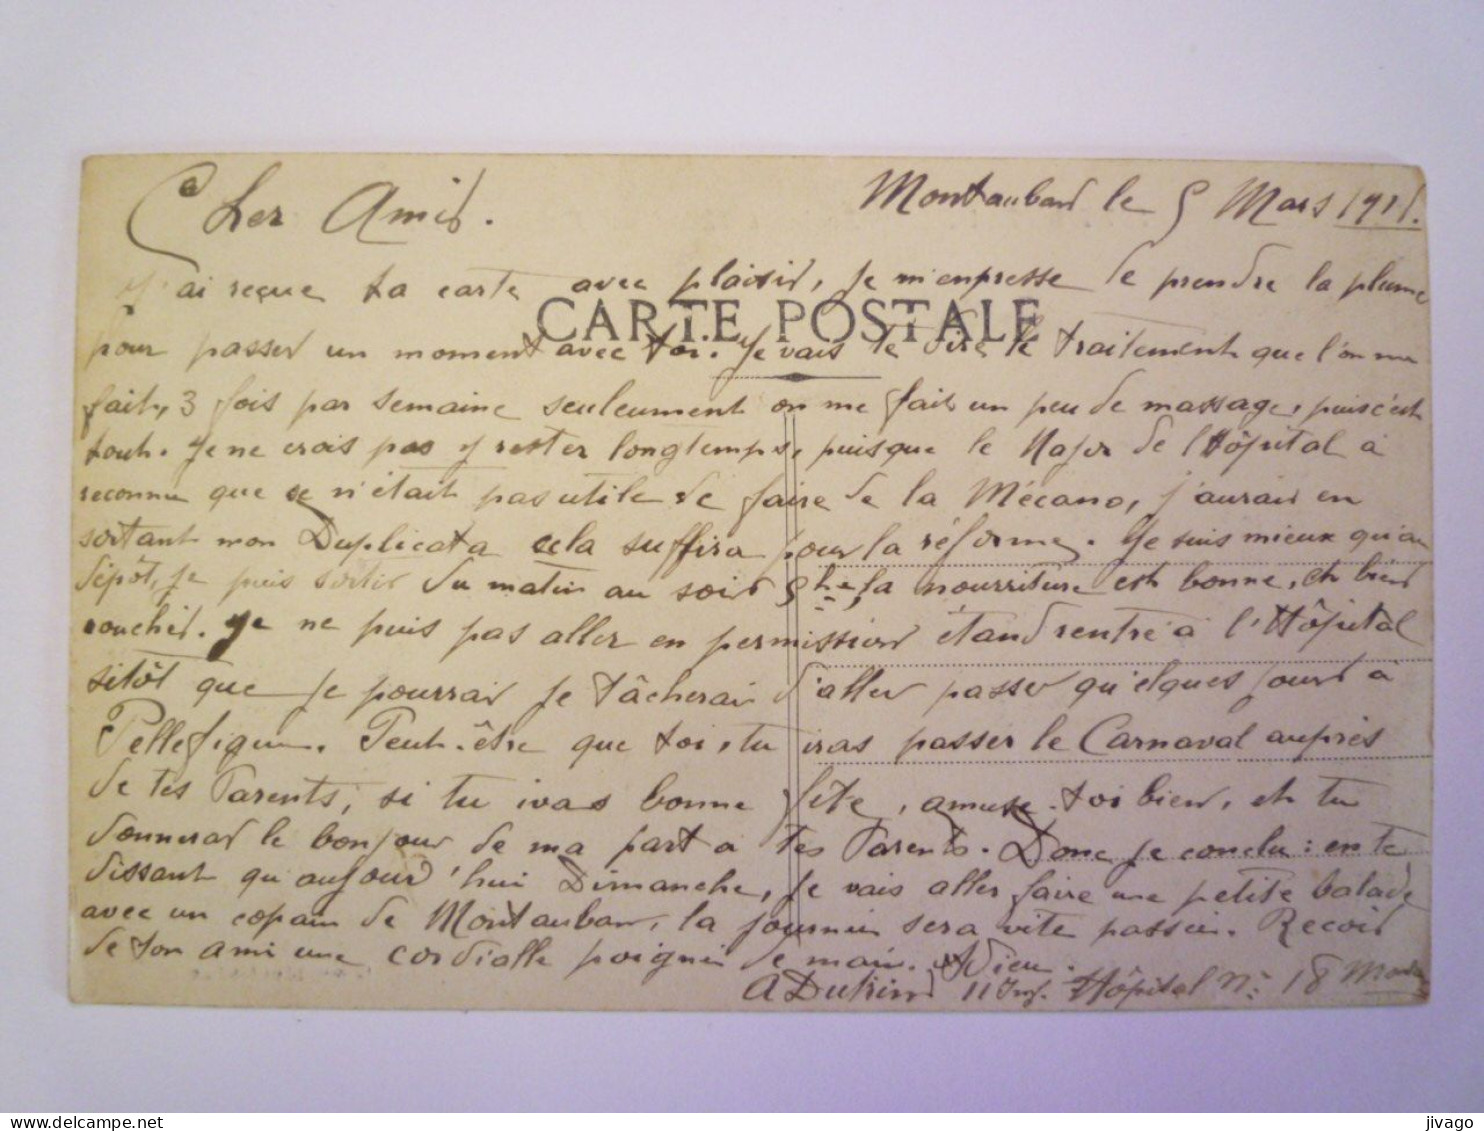 Cher Ami.
Montauban le 5 Mars
J'ai reçue ta carte avec plaisir, Je m'enpresse de prendre la plume
CARTE POSTALE
pour passer un moment avec toi. Je vais te dire le traitement que l'on me
fait, 3 fois par semaine seuleument on me fait un peu de massage, puis c'est
tout. Je ne crois pas y rester longtemps, puisque le Major de l'Hôpital à
reconnu que ce n'était pas utile de faire de la Mécano, j'aurais en
sortant mon Duplicata cela suffira pour la réforme. Je suis mieux qu'au
dépôt, je puis sortir du matin au soir 5he, la nourriture est bonne, et bien
coucher. Je ne puis pas aller en permission étand rentré à l'Hôpital
sitôt que je pourrai je tâcherai d'aller passer qu'elques jours à
Pellefigue. Peut-être que toi, tu iras passer le Carnaval auprès
de tes Parents, si tu ivas bonne fête, amuse-toi bien, et tu
donneras le bonjour de ma part à tes Parents. Donc je conclu : en te
dissant qu'aujourd'hui Dimanche, je vais aller faire une petite balade
avec un copain de Montauban, la journée sera vite passée. Recois
de ton ami une cordialle poignée de main. Adieu.
11 Inf. Hôpital N° 18
jivago